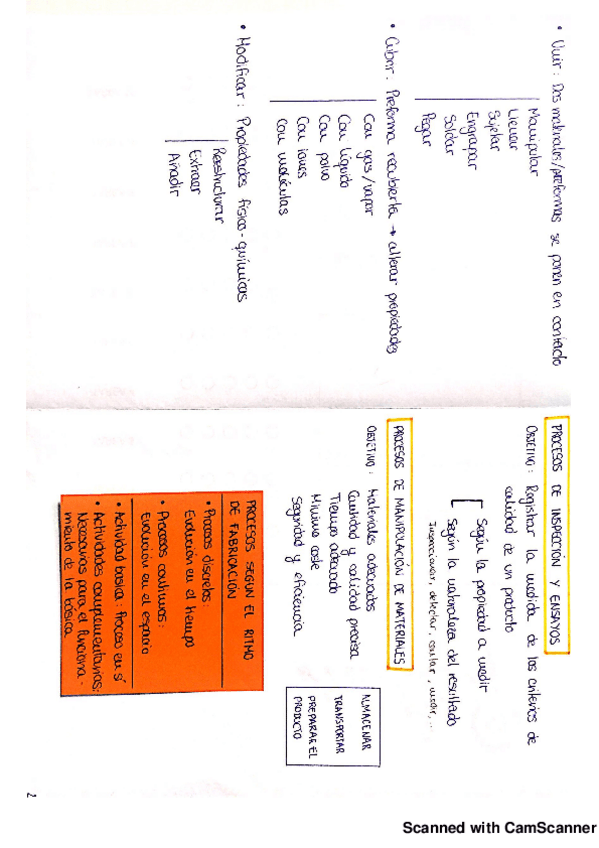 • Unir: Dos materiales/preformas se ponen en contacto
Manipular
Llenar
Sujetar
Engrapar
Soldar
Pegar
• Cubrir: Preforma recubierta → alterar propiedades
Con gas/vapor
Con líquido
Con polvo
Con iones
Con moléculas
• Modificar: Propiedades físico-químicas
Reestructurar
Extraer
Añadir
PROCESOS DE INSPECCIÓN Y ENSAYOS
OBJETIVO: Registrar la medida de los criterios de
calidad de un producto
Según la propiedad a medir
Según la naturaleza del resultado
Inspeccionar, detectar, contar, medir,...
PROCESOS DE MANIPULACIÓN DE MATERIALES
OBJETIVO: Materiales adecuados
Cantidad y calidad precisa
Tiempo adecuado
Mínimo coste
Seguridad y eficiencia
ALMACENAR
TRANSPORTAR
PREPARAR EL
PRODUCTO
PROCESOS SEGÚN EL RITMO
DE FABRICACIÓN
• Procesos discretos:
Evolución en el tiempo
• Procesos continuos:
Evolución en el espacio
• Actividad básica: Proceso en sí
• Actividades complementarias:
Necesarias para el funciona-
miento de la básica
2
Scanned with CamScanner